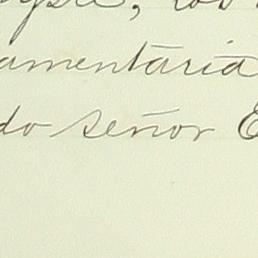 amentaria
do señor E